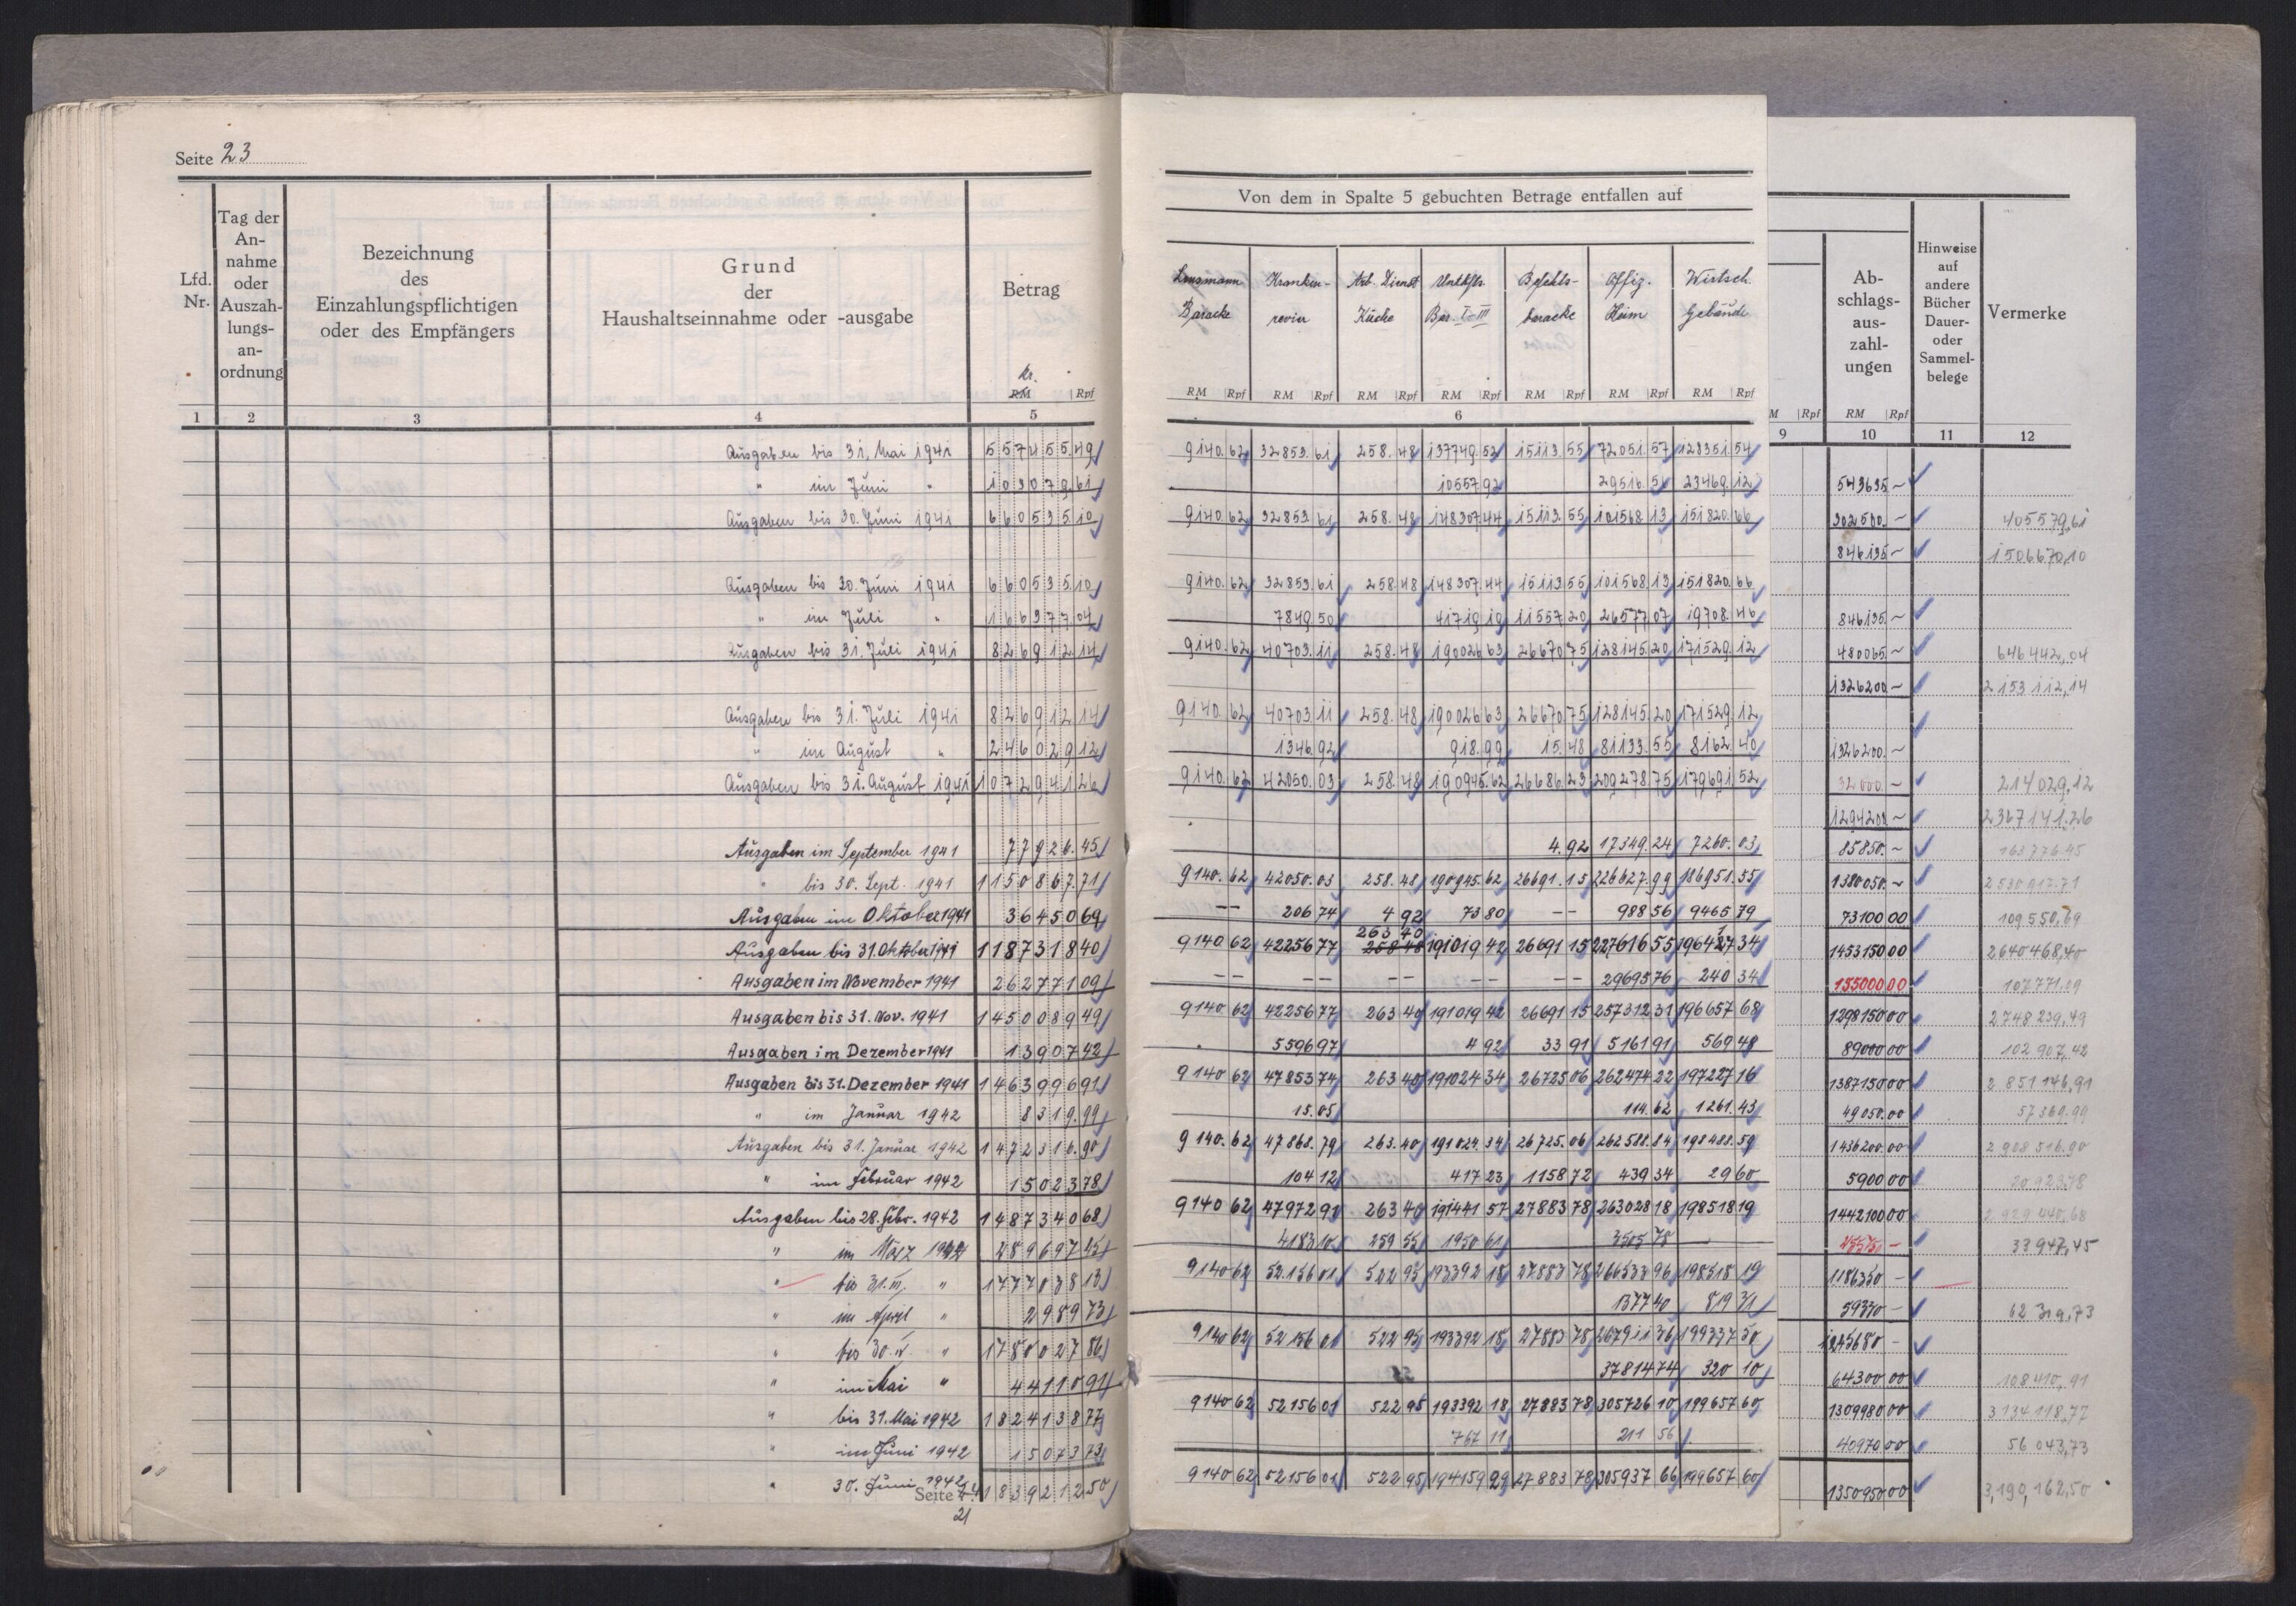 Seite 23
Von dem in Spalte 5 gebuchten Betrage entfallen auf
Lfd. Nr.
Tag der An-nahme oder Auszah-lungs-an-ordnung
Bezeichnung des Einzahlungspflichtigen oder des Empfängers
Grund der Haushaltseinnahme oder -ausgabe
Betrag
kr.
RM Rpf
Baracke
Kranken-revier
Arb. Dienst Küche
Bar. I-III
Befehls-baracke
Offiz. Heim
Wirtsch. Gebäude
RM Rpf RM Rpf RM Rpf RM Rpf RM Rpf RM Rpf RM Rpf
M Rpf
Ab-schlags-aus-zahl-ungen
RM Rpf
Hinweise auf andere Bücher Dauer- oder Sammel-belege
Vermerke
1 2 3 4 5 6 9 10 11 12
Ausgaben bis 31. Mai 1941 557455,49 9140.62 32853.61 258.48 137749.52 15113.55 72051.57 128351.54
" im Juni " 103079.61 10557.92 29516.56 23469.12 543635.-
Ausgaben bis 30. Juni 1941 660535.10 9140.62 32853.61 258.48 148307.44 15113.55 101568.13 151820.66 302500.- 405579,61
846135.- 1506670,10
Ausgaben bis 30. Juni 1941 660535.10 9140.62 32853.61 258.48 148307.44 15113.55 101568.13 151820.66
" im Juli " 166377.04 7849.50 41719.19 11557.20 26577.07 19708.46 846135.-
Ausgaben bis 31. Juli 1941 826912.14 9140.62 40703.11 258.48 190026.63 26670.75 128145.20 171529.12 480065.- 646442,04
1326200.- 2153112,14
Ausgaben bis 31. Juli 1941 826912.14 9140.62 40703.11 258.48 190026.63 26670.75 128145.20 171529.12
" im August " 246029.12 1346.92 918.99 15.48 81133.55 8162.40 1326200.-
Ausgaben bis 31. August 1941 1072941.26 9140.62 42050.03 258.48 190945.62 26686.23 209278.75 179691.52 32000.- 214029,12
1294200.- 2367141.26
Ausgaben im September 1941 77926.45 4.92 17349.24 7260.03 85850.- 163776.45
" bis 30. Sept. 1941 1150867.71 9140.62 42050.03 258.48 190945.62 26691.15 226627.99 186951.55 1380050.- 2530917.71
Ausgaben im Oktober 1941 36450 69 -- 206 74 4 92 73 80 -- 988 56 9465 79 73100 00 109550,69
263 40
Ausgaben bis 31. Oktober 1941 1187318 40 9140 62 42256 77 258 48 191019 42 26691 15 227616 55 196417 34 1453150 00 2640468,40
Ausgaben im November 1941 262771 09 -- -- -- -- -- 29695 76 240 34 155000 00 107771.09
Ausgaben bis 31. Nov. 1941 1450089 49 9140 62 42256 77 263 40 191019 42 26691 15 257312 31 196657 68 1298150 00 2748239,49
Ausgaben im Dezember 1941 13907 42 5596 97 4 92 33 91 5161 91 569 48 89000 00 102907,42
Ausgaben bis 31. Dezember 1941 1463996 91 9140 62 47853 74 263 40 191024 34 26725 06 262474 22 197227 16 1387150 00 2851146,91
" im Januar 1942 8319.99 15.05 114.62 1261.43 49050.00 57369.99
Ausgaben bis 31. Januar 1942 1472316.90 9140.62 47868.79 263.40 191024.34 26725.06 262588.84 198488.59 1436200.00 2908516.90
" im Februar 1942 15023 78 104 12 417 23 1158 72 439 34 29 60 5900 00 20923,78
Ausgaben bis 28. Febr. 1942 1487340 68 9140 62 47972 91 263 40 191441 57 27883 78 263028 18 198518 19 1442100 00 2929440,68
" im März 1942 289697 45 4183 10 259 55 1950 61 3505 78 33947,45
" bis 31. III. " 1777038 13 9140 62 52156 01 522 95 193392 18 27883 78 266533 96 198518 19 1186350 -
" im April " 2989 73 1377 40 819 31 59330 - 62319,73
" bis 30. IV. " 1780027 86 9140 62 52156 01 522 95 193392 18 27883 78 267911 36 199337 50 1245680 -
" im Mai " 44110 91 37814 74 320 10 64300 00 108410,91
" bis 31. Mai 1942 1824138 77 9140 62 52156 01 522 95 193392 18 27883 78 305726 10 199657 60 1309980 00 3134118,77
" im Juni 1942 15073 73 767 11 211 56 40970 00 56043,73
" 30. Juni 1942 1839212 50 9140 62 52156 01 522 95 194159 29 27883 78 305937 66 199657 60 1350950 00 3,190,162,50
Seite
21